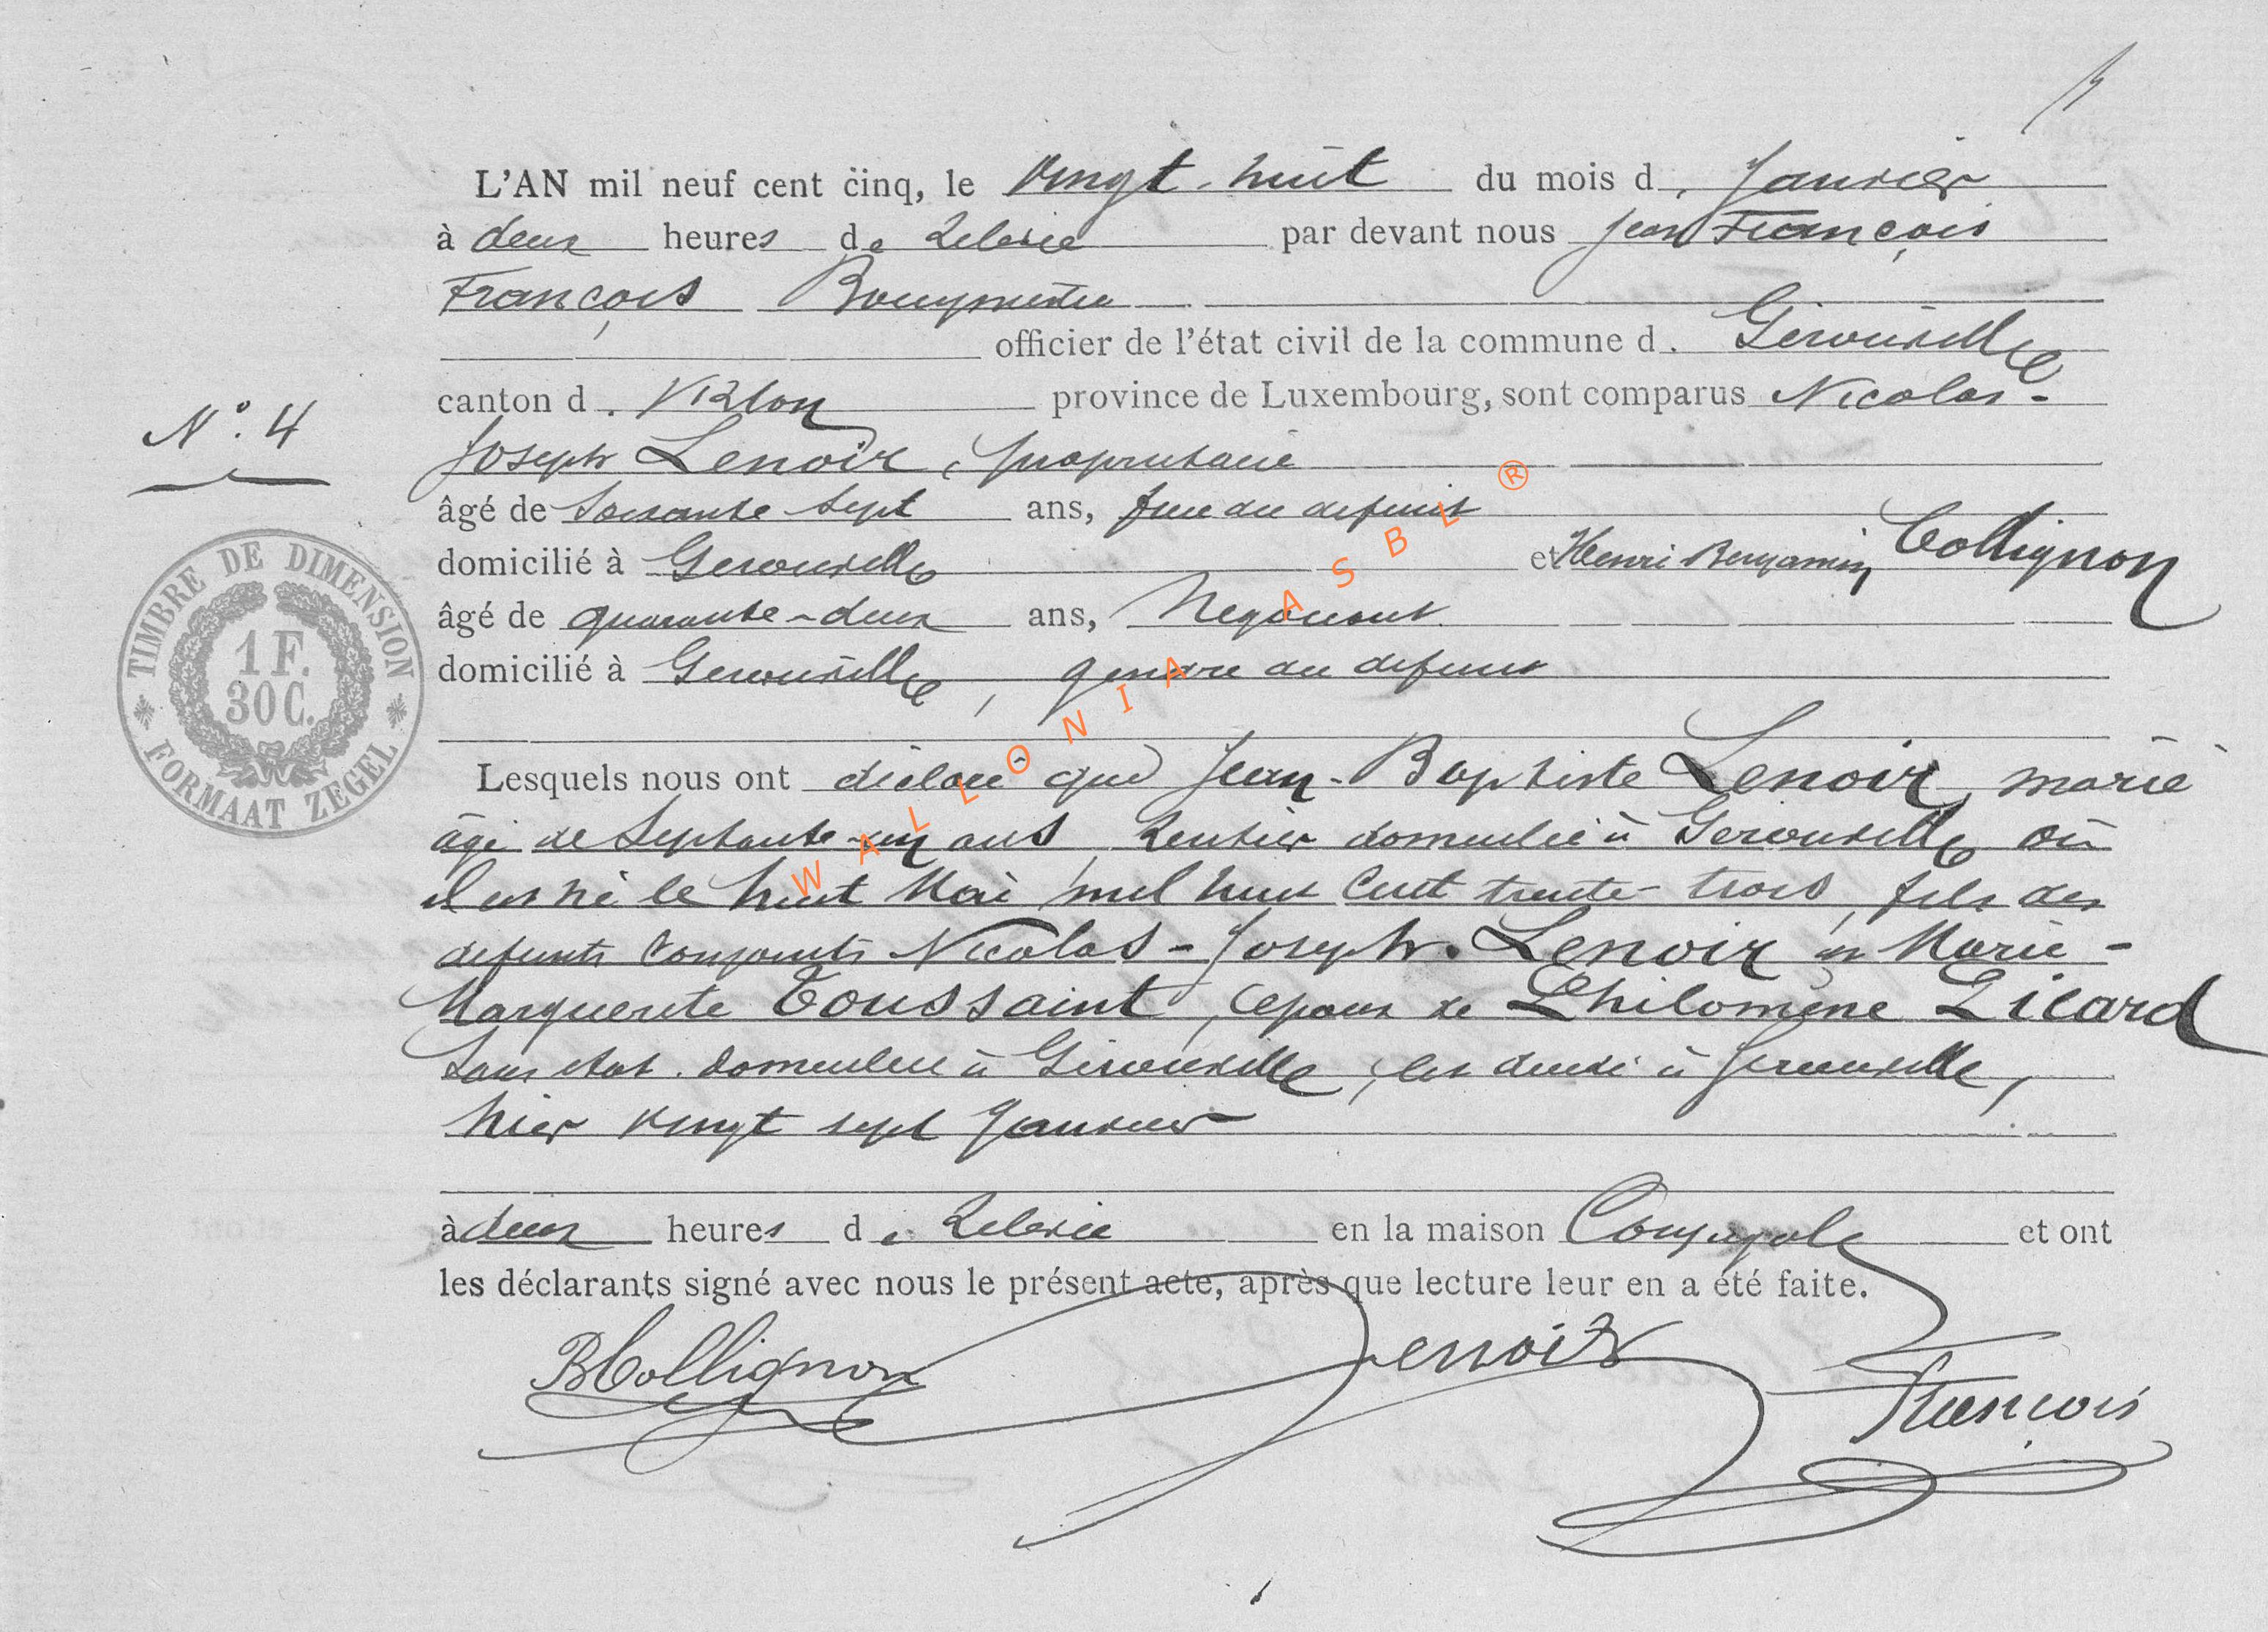 L'AN mil neuf cent cinq, le vingt-huit du mois d. Janvier
à deux heures de relevée par devant nous Jean François
François Bourgmestre
officier de l'état civil de la commune d. Gérouville
canton d. Virton province de Luxembourg, sont comparus Nicolas-
N°. 4
Joseph Lenoir, propriétaire
âgé de soixante sept ans, frère du défunt
domicilié à Gérouville et Henri Benjamin Collignon
âgé de quarante-deux ans, Négociant
domicilié à Gérouville, gendre du défunt
TIMBRE DE DIMENSION
1 F.
30 C.
FORMAAT ZEGEL
Lesquels nous ont déclaré que Jean-Baptiste Lenoir, marié
âgé de septante-un ans, rentier domicilié à Gérouville où
il est né le huit Mai mil huit cent trente-trois, fils des
défunts conjoints Nicolas-Joseph Lenoir et Marie-
Marguerite Toussaint, époux de Philomène Picard
sans état domiciliée à Gérouville, est décédé à Gérouville,
hier vingt sept Janvier
à deux heures de relevée en la maison Conjugale et ont
les déclarants signé avec nous le présent acte, après que lecture leur en a été faite.
BCollignon Lenoir François
WALLONIA ASBL ®